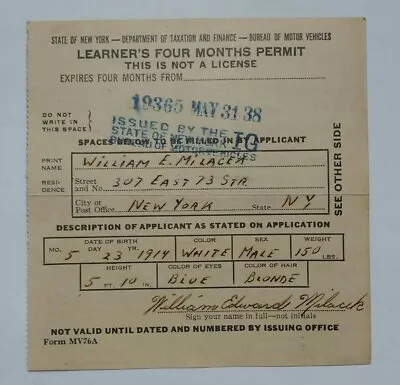 STATE OF NEW YORK — DEPARTMENT OF TAXATION AND FINANCE — BUREAU OF MOTOR VEHICLES
LEARNER'S FOUR MONTHS PERMIT
THIS IS NOT A LICENSE
EXPIRES FOUR MONTHS FROM
19365 MAY 31 38
DO NOT WRITE IN THIS SPACE
ISSUED BY THE
STATE OF NEW YORK
BUREAU OF MOTOR VEHICLES
IG
SPACES BELOW TO BE FILLED IN BY APPLICANT
PRINT NAME WILLIAM E. MILACEK
RESIDENCE Street and No. 307 EAST 73 STR.
City or Post Office NEW YORK State NY
SEE OTHER SIDE
DESCRIPTION OF APPLICANT AS STATED ON APPLICATION
DATE OF BIRTH COLOR SEX WEIGHT
MO. 5 DAY 23 YR. 1914 WHITE MALE 150 LBS.
HEIGHT COLOR OF EYES COLOR OF HAIR
5 FT. 10 IN. BLUE BLONDE
William Edward Milacek
Sign your name in full—not initials
NOT VALID UNTIL DATED AND NUMBERED BY ISSUING OFFICE
Form MV76A